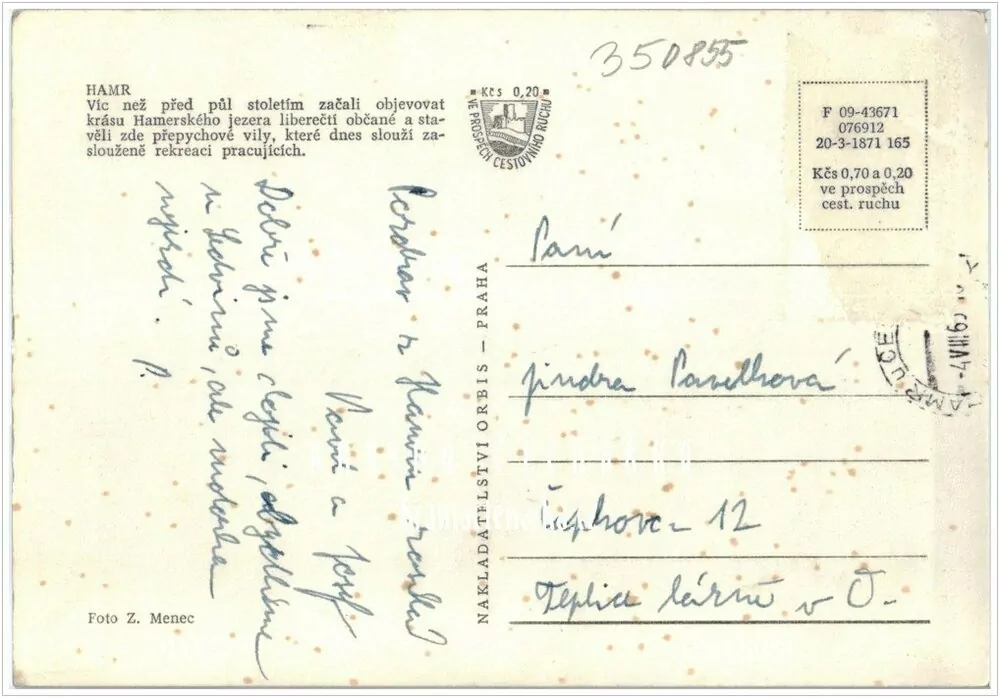 350855
HAMR
Víc než před půl stoletím začali objevovat
krásu Hamerského jezera liberečtí občané a sta-
věli zde přepychové vily, které dnes slouží za-
slouženě rekreaci pracujících.
Kčs 0,20
VE PROSPĚCH CESTOVNÍHO RUCHU
F 09-43671
076912
20-3-1871 165
Kčs 0,70 a 0,20
ve prospěch
cest. ruchu
Pozdrav z Hamru
a Josef
Dobří jsme dojeli,
ale
P.
NAKLADATELSTVÍ ORBIS — PRAHA
Paní
Jindra Pavelková
12
Teplice lázně v Č.
-4.VIII.69
Foto Z. Menec